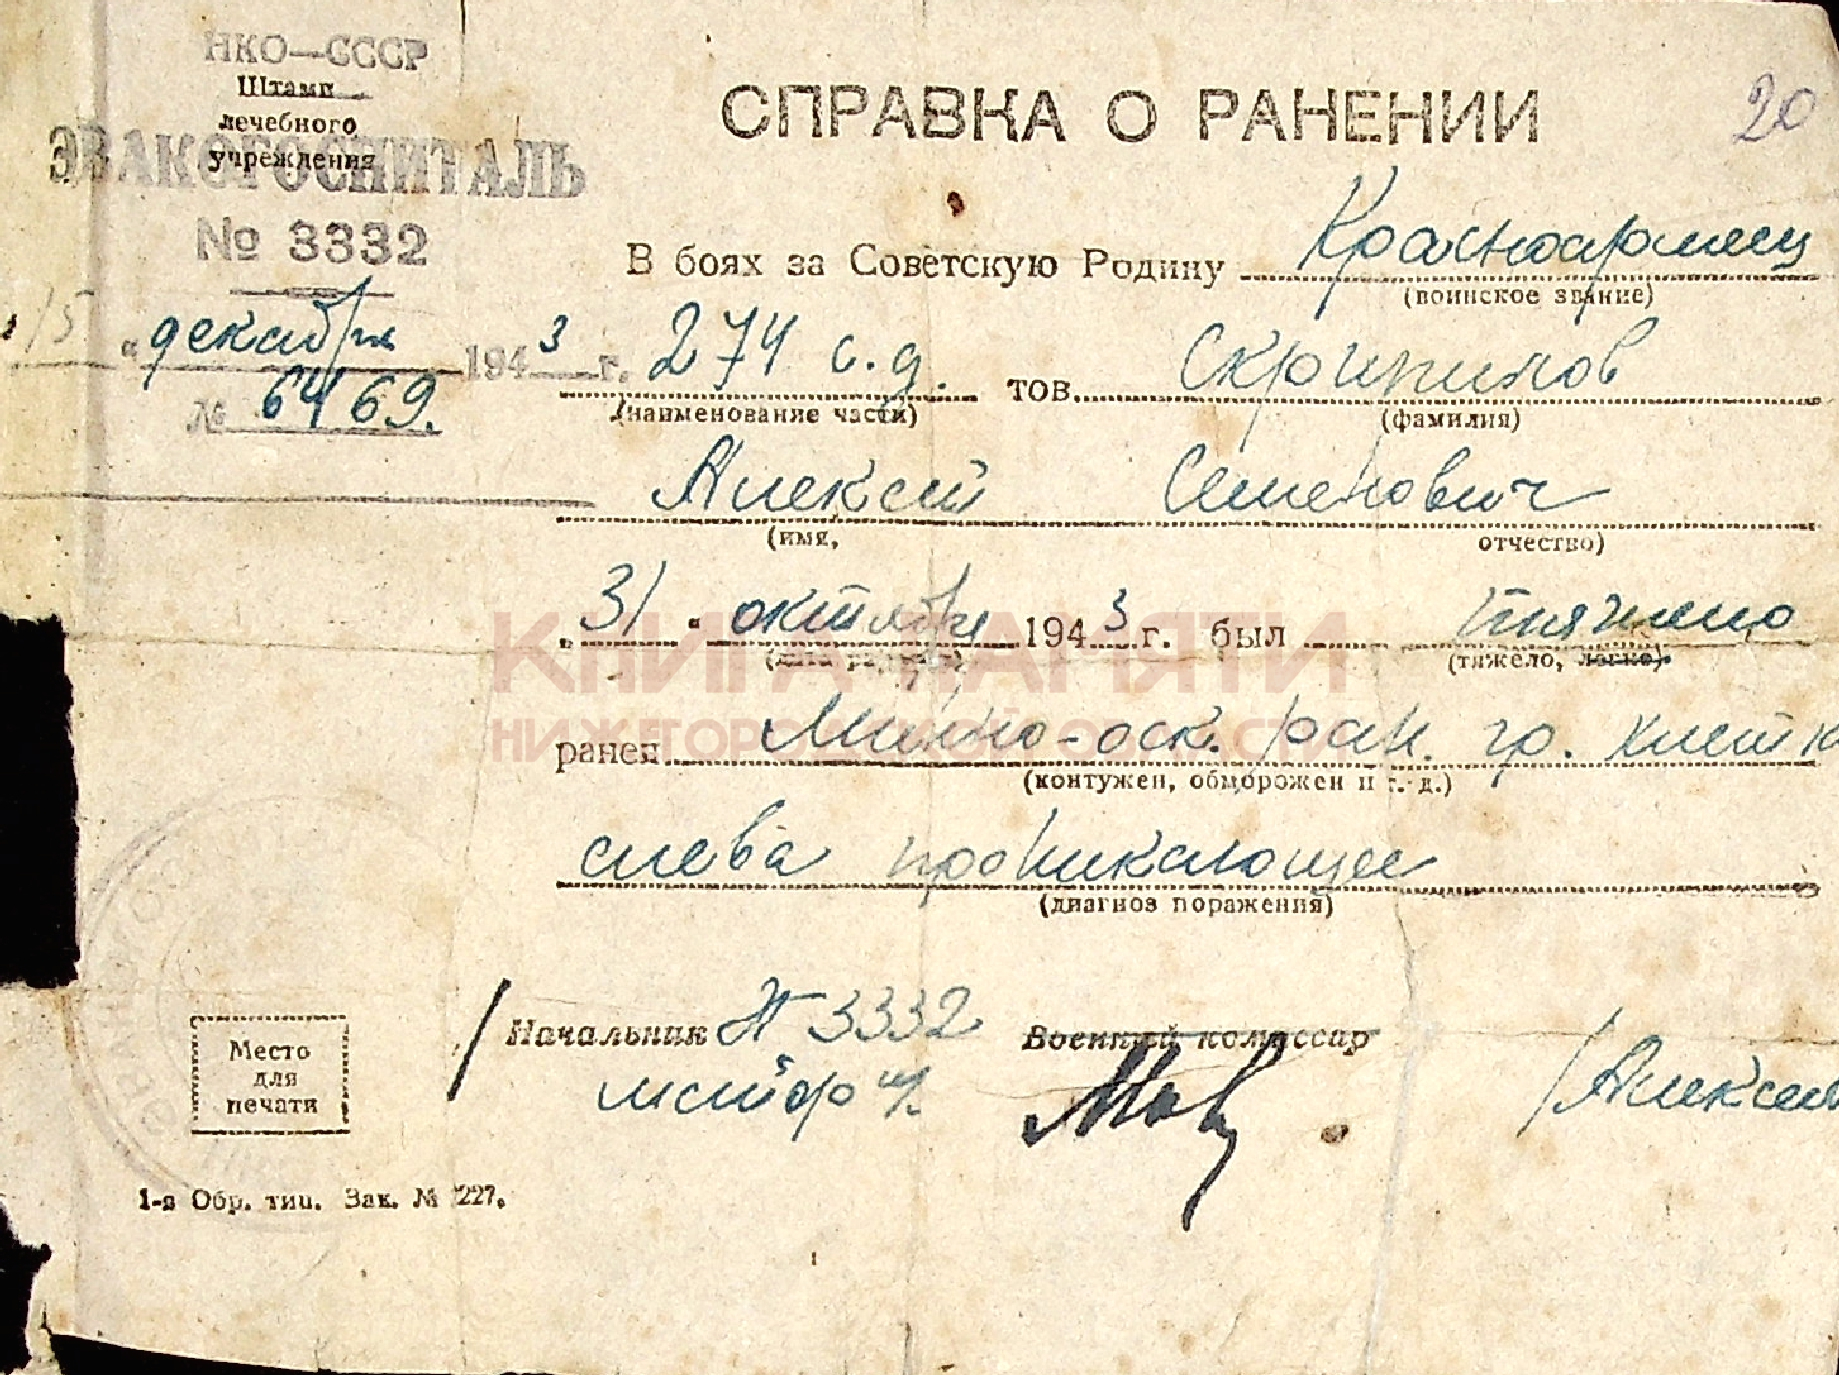 НКО—СССР
Штамп
лечебного
учреждения
ЭВАКОГОСПИТАЛЬ
№ 3332
"15" декабря 1943 г.
№ 6469.
СПРАВКА О РАНЕНИИ
20
В боях за Советскую Родину Красноармеец
(воинское звание)
274 с.д. тов. Скрипинов
(наименование части) (фамилия)
Алексей Семенович
(имя, отчество)
"31" октября 1943 г. был тяжело
(дата ранения) (тяжело, легко)
КНИГА ПАМЯТИ
НИЖЕГОРОДСКОЙ ОБЛАСТИ
ранен Минно-оск. ран. гр. клетк
(контужен, обморожен и т. д.)
слева проникающее
(диагноз поражения)
Начальник ЭГ 3332 Военный комиссар
майор м/с /Алексе
Место
для
печати
1-я Обр. тип. Зак. № 227.